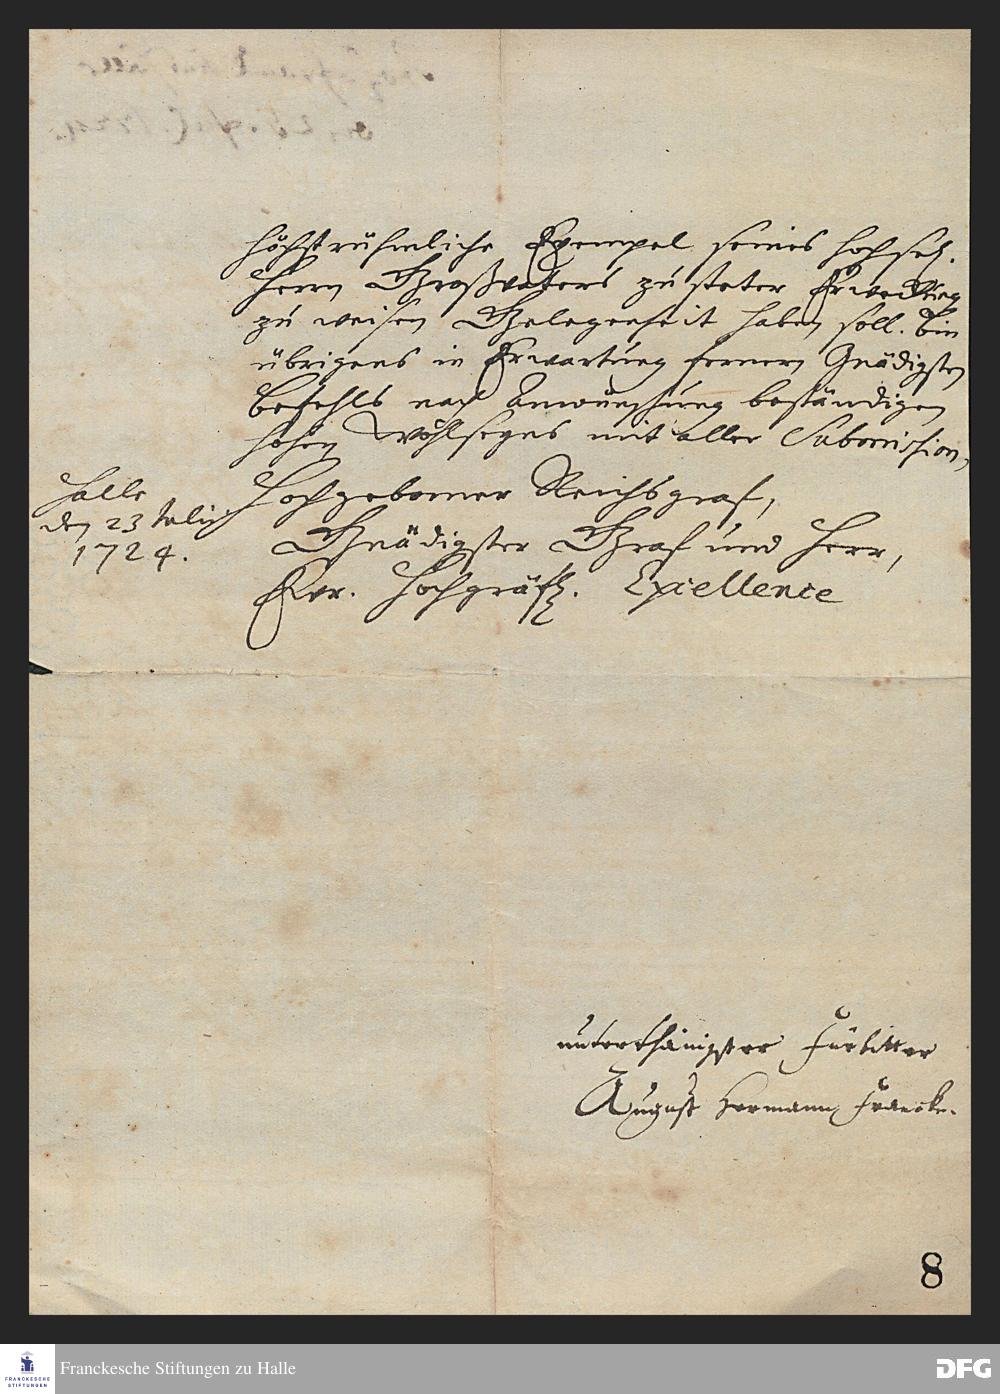 höchstrühmliche Exempel seines hochsel.
Herrn Großvaters zu steter Erweckung
zu weisen Gelegenheit haben soll. Bin
übrigens in Erwartung fernern Gnädigsten
Befehls nach Anwünschung beständigen
hohen Wohlseyns mit aller Submission,
Hochgeborner Reichsgraf,
Halle
den 23 Julij
1724.
Gnädigster Graf und Herr,
Ew. Hochgräfl. Excellence
unterthänigster Fürbitter
August Hermann Francke.
8
FRANCKESCHE
STIFTUNGEN
Franckesche Stiftungen zu Halle
DFG